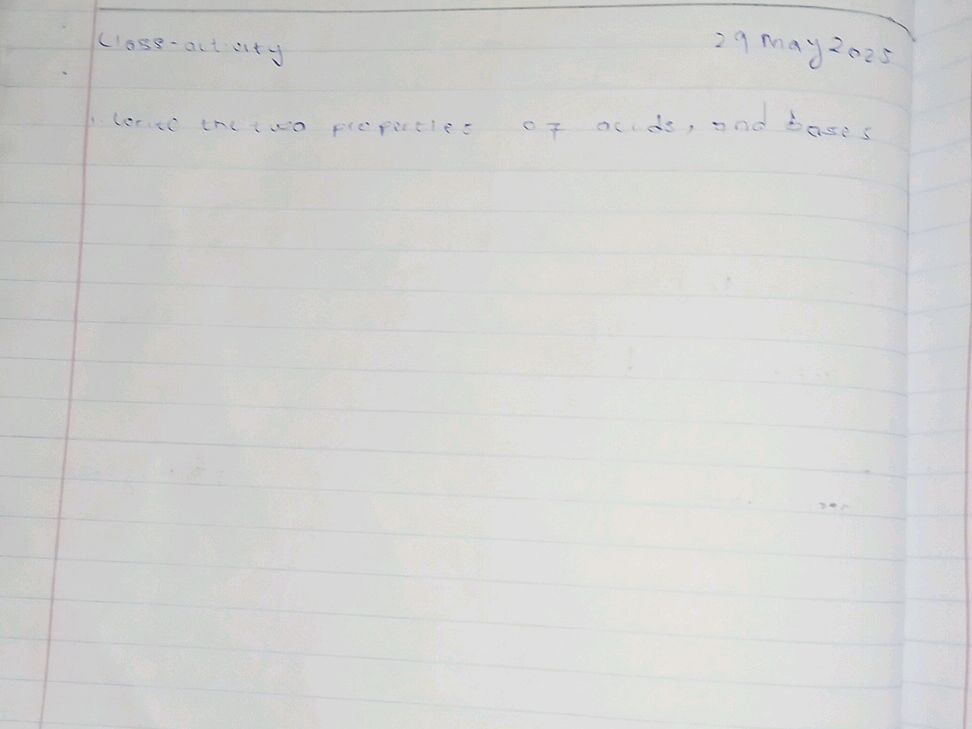 Class-activity
29 May 2025
. write the two properties of acids, and bases